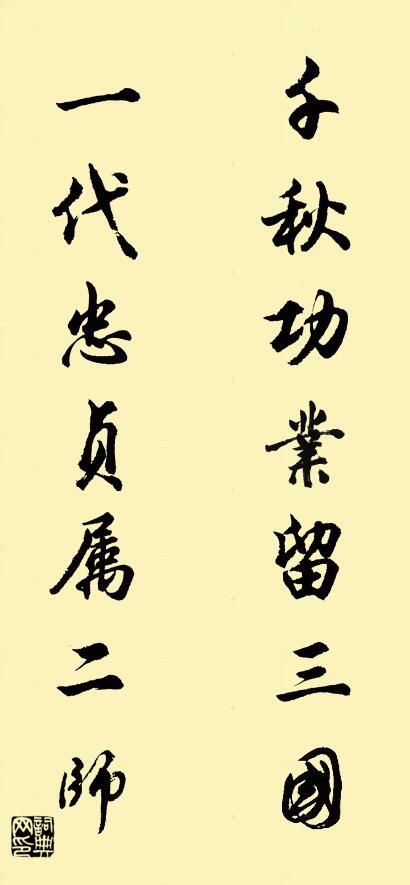 千秋功業留三國
一代忠貞属二師
詞典网印